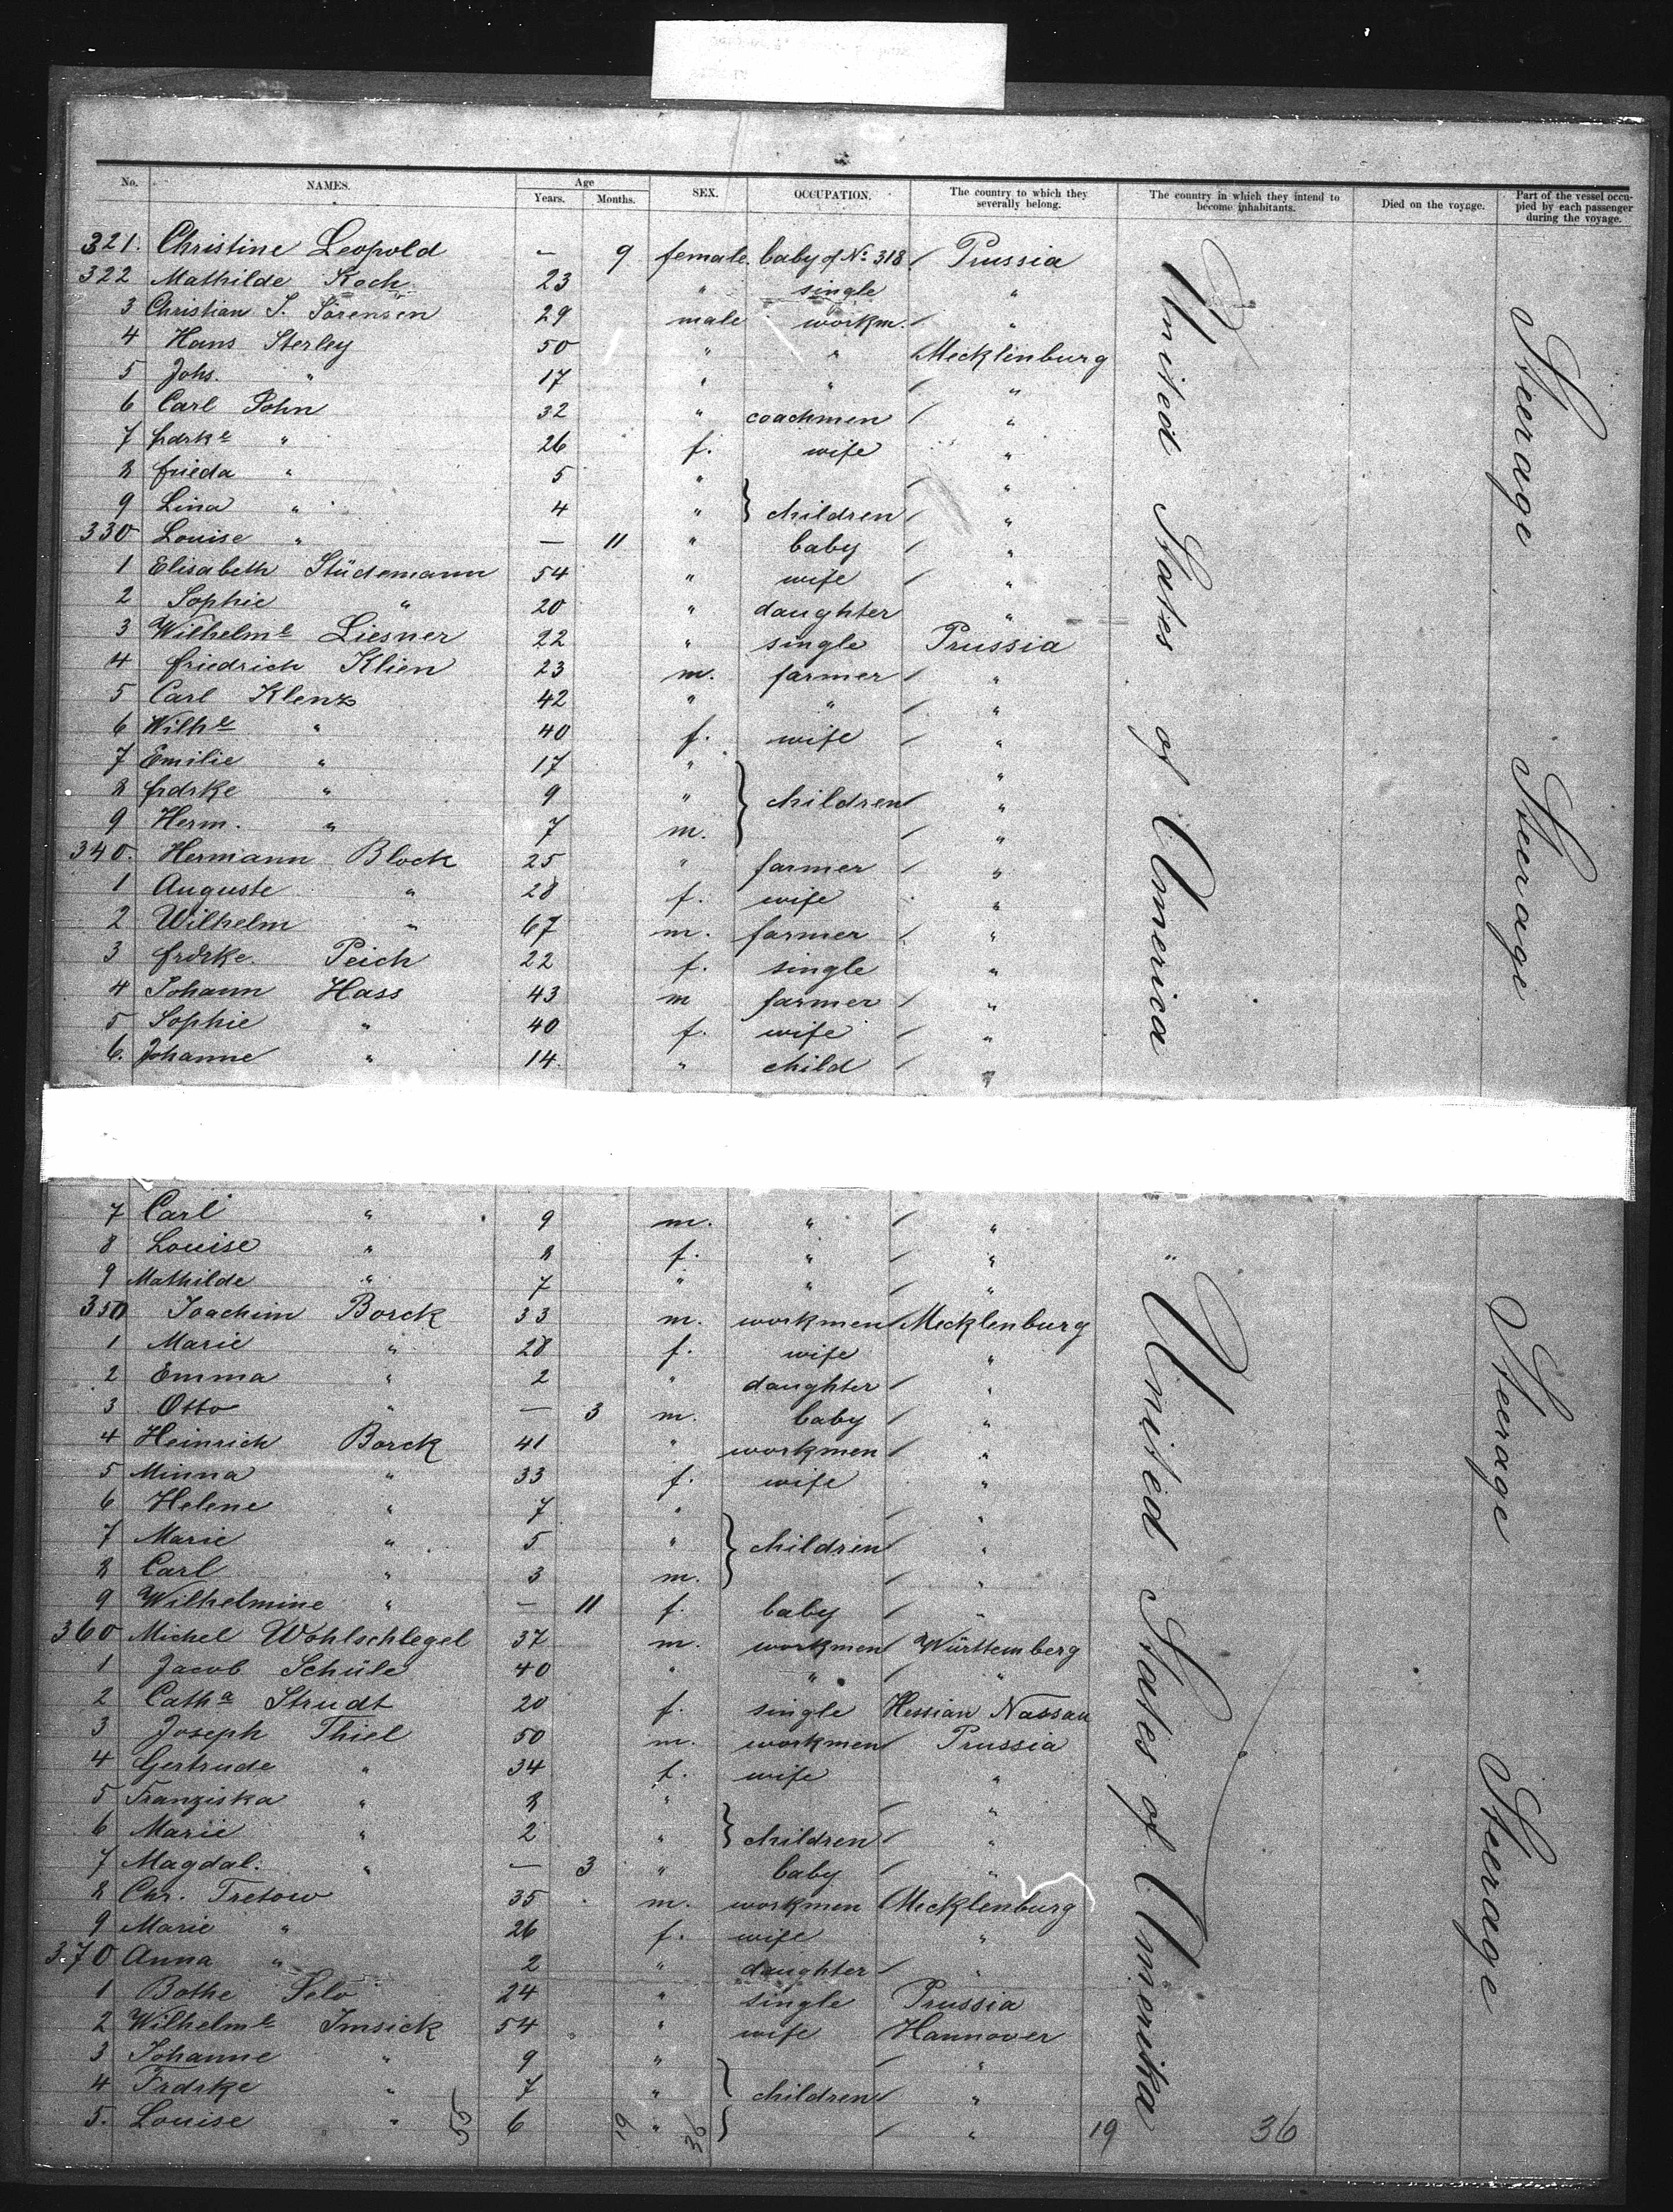 No. NAMES. Age Years. Months. SEX. OCCUPATION. The country to which they severally belong. The country in which they intend to become inhabitants. Died on the voyage. Part of the vessel occupied by each passenger during the voyage.
321. Christine Leopold — 9 female baby of No. 318 Prussia
322 Mathilde Koch 23 " single "
3 Christian S. Sörensen 29 male workm. "
4 Hans Sterley 50 " " Mecklenburg
5 Johs. " 17 " " "
6 Carl John 32 " coachmen "
7 Frdrke " 26 f. wife "
8 Frieda " 5 " "
9 Lina " 4 " } children "
330 Louise " — 11 " baby "
1 Elisabeth Stüdemann 54 " wife "
2 Sophie " 20 " daughter "
3 Wilhelme Liesner 22 " single Prussia
4 Friedrich Klien 23 m. farmer "
5 Carl Klenz 42 " " "
6 Wilhe " 40 f. wife "
7 Emilie " 17 " "
8 Frdrke " 9 " } children "
9 Herm. " 7 m. "
340. Hermann Block 25 " farmer "
1 Auguste " 28 f. wife "
2 Wilhelm " 67 m. farmer "
3 Frdrke. Peich 22 f. single "
4 Johann Hass 43 m farmer "
5 Sophie " 40 f. wife "
6. Johanne " 14. " child "
United States of America
Steerage Steerage
7 Carl " 9 m. " "
8 Louise " 8 f. " " "
9 Mathilde " 7 " " "
350 Joachim Borck 33 m. workmen Mecklenburg
1 Marie " 28 f. wife "
2 Emma " 2 " daughter "
3 Otto " — 3 m. baby "
4 Heinrich Borck 41 " workmen "
5 Minna " 33 f. wife "
6 Helene " 7 " "
7 Marie " 5 " } children "
8 Carl " 3 m. "
9 Wilhelmine " — 11 f. baby "
360 Michel Wohlschlegel 37 m. workmen Württemberg
1 Jacob Schüle 40 " " "
2 Catha Strudt 20 f. single Hessian Nassau
3 Joseph Thiel 50 m. workmen Prussia
4 Gertrude " 34 f. wife "
5 Franziska " 8 " "
6 Marie " 2 " } children "
7 Magdal. " — 3 " baby "
8 Chr. Tretow 35 m. workmen Mecklenburg
9 Marie " 26 f. wife "
370 Anna " 2 " daughter "
1 Bothe Selo 24 " single Prussia
2 Wilhelme Imsick 54 " wife Hannover
3 Johanne " 9 " "
4 Frdrke " 7 " } children "
5. Louise " 55 6 19 " 36 " 19 36
United States of Amerika
Steerage Steerage